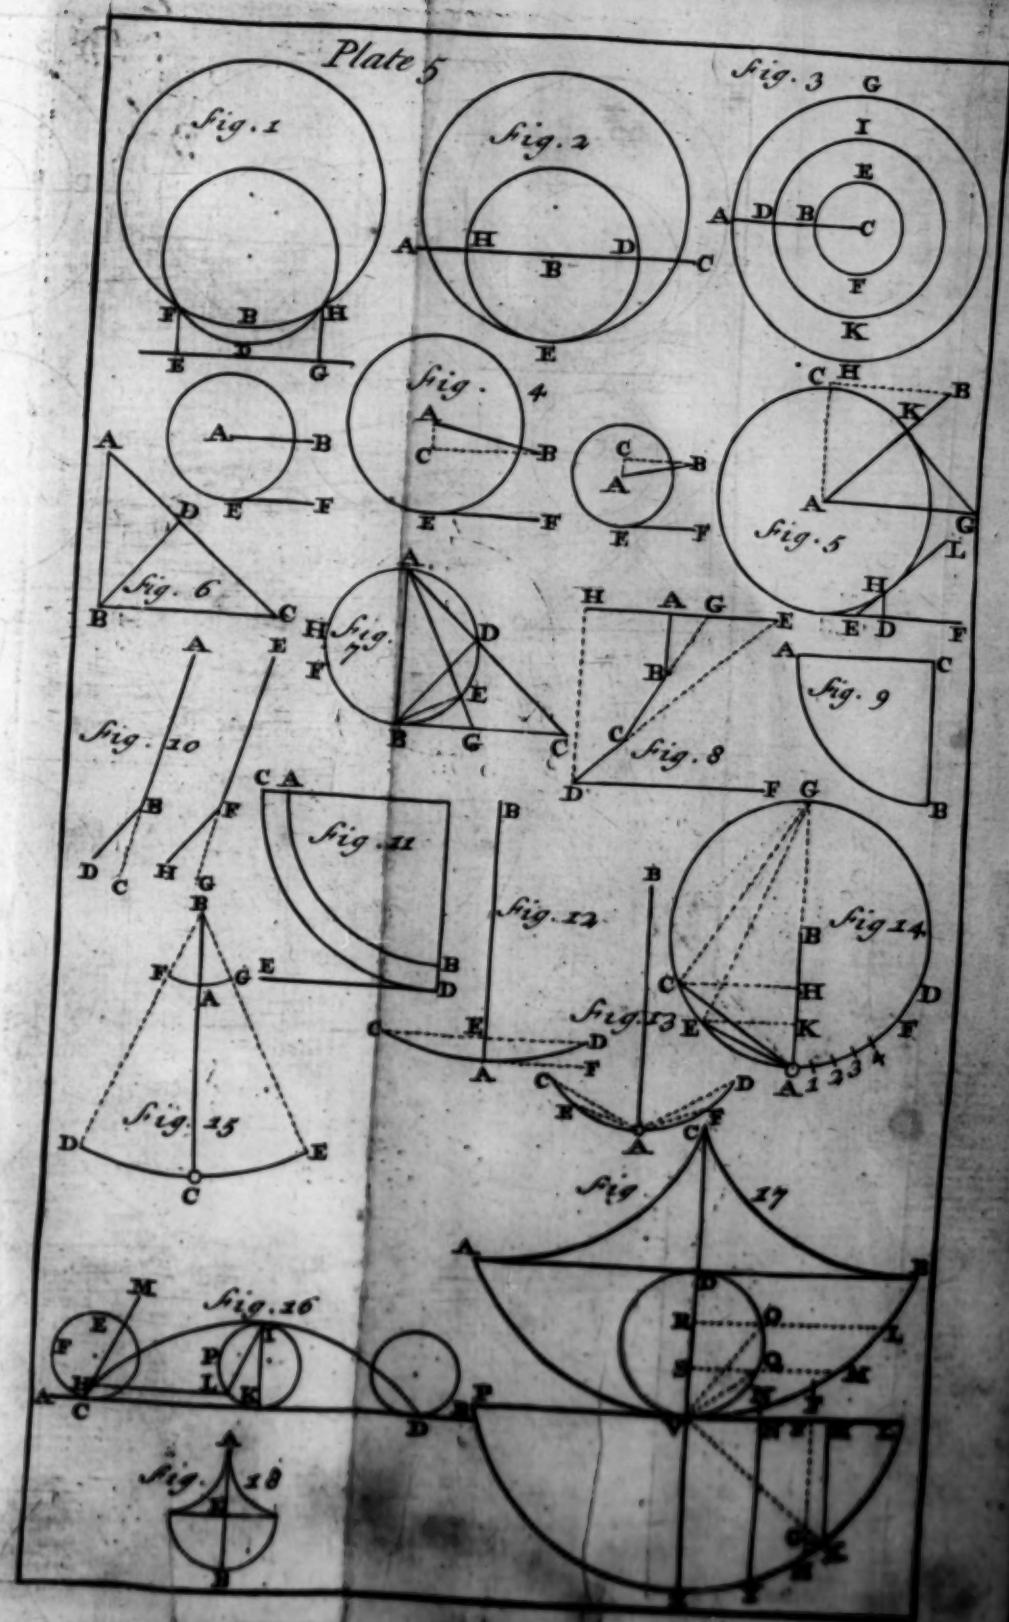 Plate 5
Fig. 1
F B H
D
E G
Fig. 2
A H D C
B
E
Fig. 3 G
I
E
A D B C
F
K
H
Fig. 4
A B
E F
A
C B
E F
C B
A
E F
C B
K
A G
Fig. 5
L
H
E D F
A
D
Fig. 6
B C
A
H Fig. 7 D
F
E
B G C
H A G E
B
C
Fig. 8
D F
A C
Fig. 9
B
A E
Fig. 10
B F
D C H G
C A
Fig. 11
B
E D
B
Fig. 12
C E D
A F
B
Fig. 13
C D
E F
A
G
B Fig 14
C H D
E K F
A 1 2 3 4
B
F G
A
Fig. 15
D E
C
M Fig. 16
E
F I
P
H L K
A C D B
C
Fig. 17
A B
D
R O L
S Q M
P V N
A
Fig. 18
B